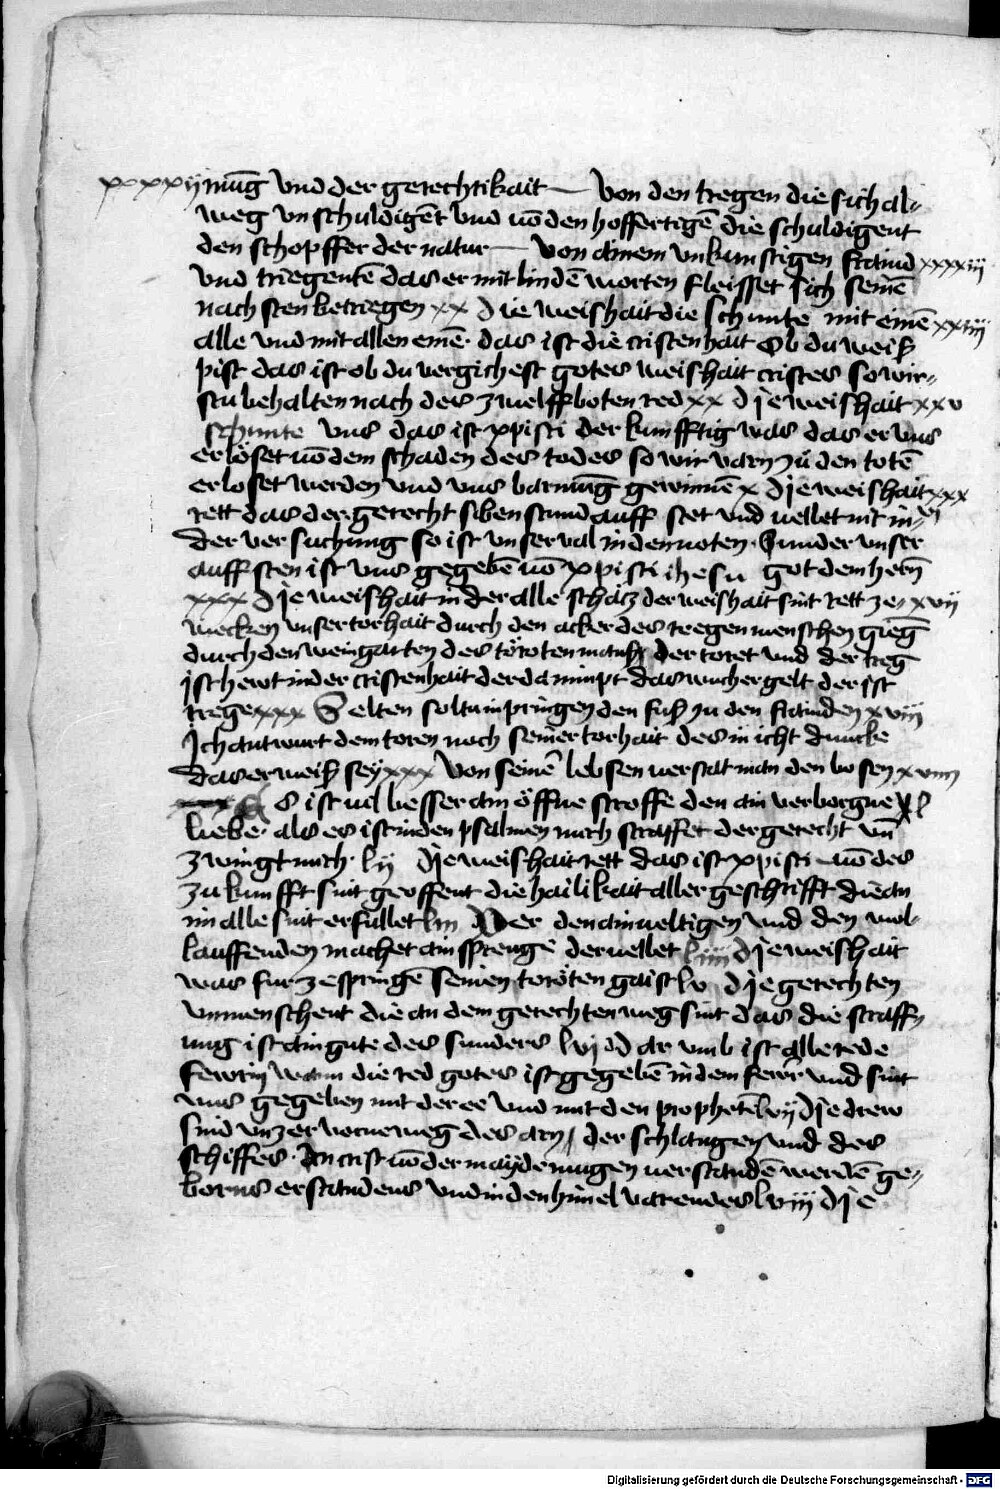 xxxxij mūg vnd der gerechtikait — von den tregen die sich al-
weg vnschuldigēt vnd uō den hoffertigē die schuldigent
den schopffer der natur — von ainem vnkunstigen fraind xxxxiij
vnd triegentē das er mit lindē worten fleisset sich seinē
nachsten betriegen xx die weishait die schunte mit einē xxiiij
alle vnd mit allen einē. das ist die cristenhait Ob du weiß
pist das ist ob du vergichest gotes weishait cristes so wir-
stu behalten nach des zwelffboten red xx dje weishait xxv
schunte vns das ist xpisti der kumfftig was das er vns
erlöset uō dem schaden des todes so wir varn zů den totē
erloset werden vnd vns barmūg gewinnē x dje weishait xxx
rett das der gerecht siben stund auff stet vnd vellet nit in
der versuchung so ist vnser val in den noten. Sunder vnser
auffsten ist vns gegebē uō xpisti ihesu got dem hern
xxx dje weishait in der alle schatz der weishait sint rett ze- xvij
wecken vnser torhait durch den acker des tregen menschen gieg
durch den weingarten des töroten der toret vnd der treg
ist hewt in der cristenhait der da nimpt das wuchergelt der ist
trege xxx Selten soltu inpringen den fuß zu den frainden xviij
Ich antwurt dem toren noch seiner torhait des in icht duncke
das er weiß sey xxx Von seinē lebsen uerstat man den bosen xviiij
Es ist uil besser ain öffne stroffe den ain verborgne xl
liebe. als es ist in den psalmen mich straffet der gerecht vn̄
zwingt mich. lij dje weishait rett das ist xpisti uō des
zukumfft sint geoffent die hailikait aller geschrifft die an
im alle sint erfullet liij Wer den ainueltigen vnd den wol-
lauffenden machet ain sprenge der uellet liiij dje weishait
was fur zespringē seinen toröten gaist lv dje gerechten
vnmenschent die an dem gerechten weg sint das die straff
ung ist ain gute des sunders lvj dar vmb ist alle rede
fewrin wann die red gotes ist gegebē in dem fewr vnd sint
vns gegeben mit der ee vnd mit den prophetē lvij dje drew
sind vnzer uorne weg des arn, der schlangen vnd des
schiffes. An crist uō der mayde mugen uerstandē werdē ge-
borns erstandens vnd in den himel varendes lviij dje
Digitalisierung gefördert durch die Deutsche Forschungsgemeinschaft - DFG